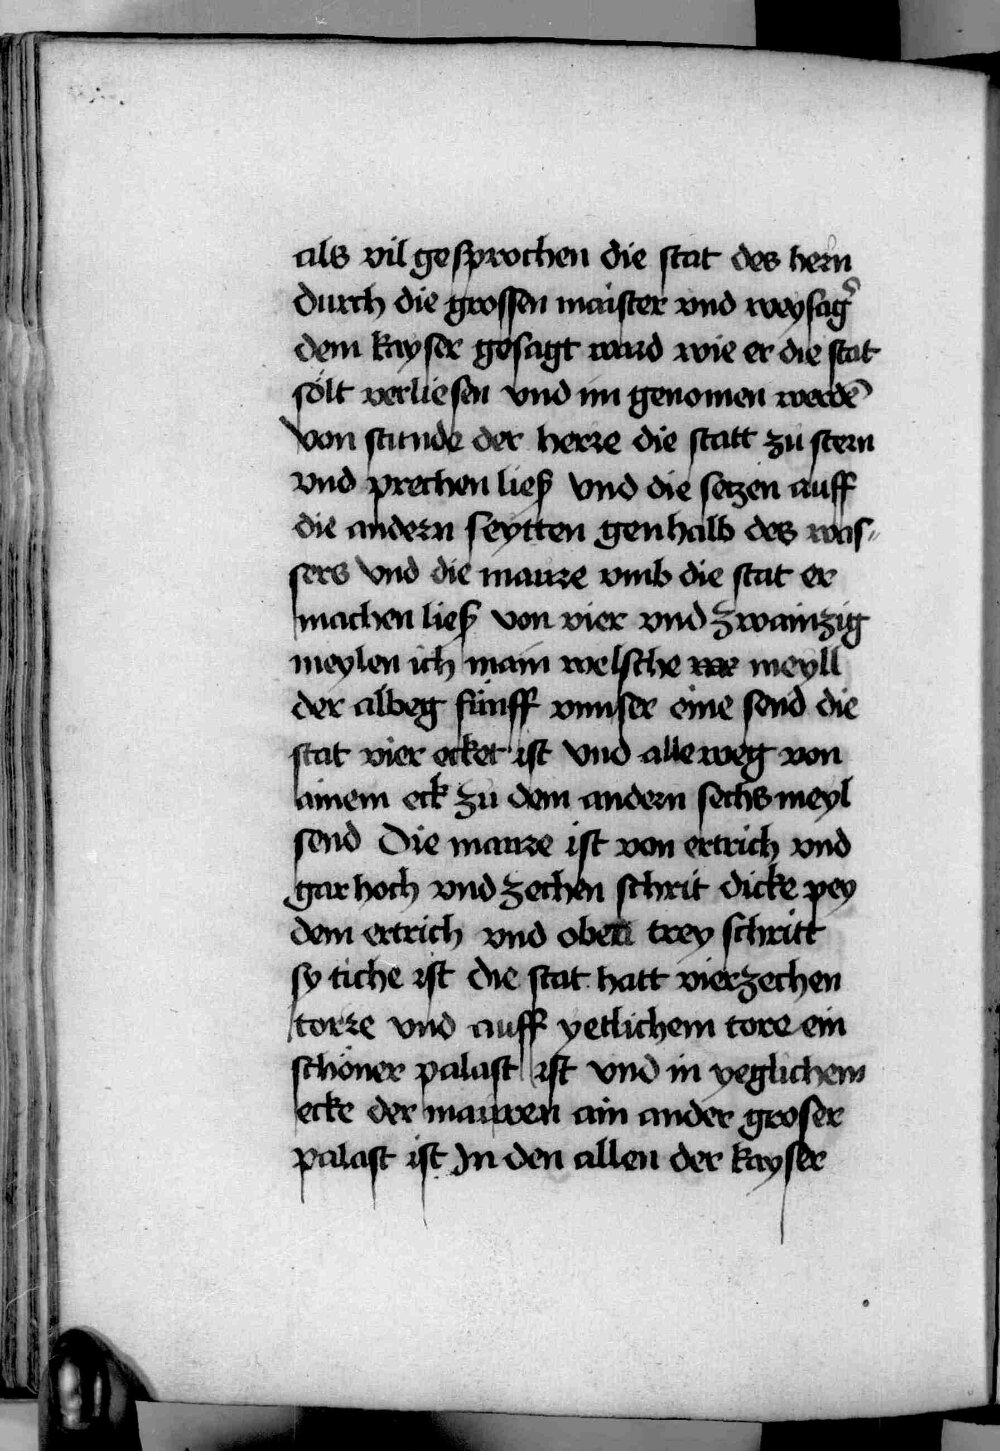 als vil gesprochen die stat des hern
durch die grossen maister vnd weysag̉
dem kayser gesagt ward wie er die stat
sölt verliesen vnd im genomen werdē
von stunde der herre die statt zu stern
vnd prechen ließ vnd die setzen auff
die andern seytten genhalb des was„
sers vnd die maure vmb die stat er
machen ließ von vier vnd zwainzig
meylen ich main welsche meyll
der albeg fünff vnnser eine send die
stat vier ecket ist vnd alleweg von
ainem eck zu dem andern sechs meyl
send Die maure ist von ertrich vnd
gar hoch vnd zechen schrit dicke pey
dem ertrich vnd oben trey schritt
sy tiche ist die stat hatt vierzechen
torre vnd auff yetlichem tore ein
schöner palast ist vnd in yeglichem
ecke der mauren ain ander groser
palast ist In den allen der kayser